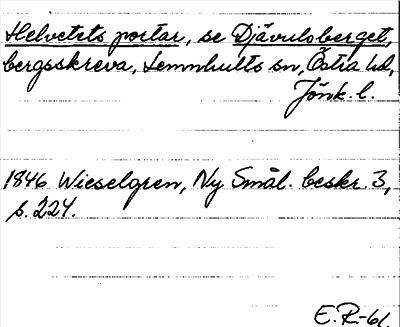 Helvetets portar, se Djävulsberget,
bergsskreva, Lemnhults sn, Östra hd,
Jönk. l.
1846 Wieselgren, Ny Smål. beskr. 3,
s. 224.
E.R.-61.